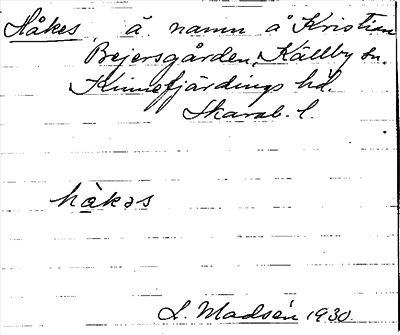 Håkes, ä. namn å Kristian
Bejersgården, Källby sn.
Kinnefjärdings hd.
Skarab. l.
hàkəs
L. Madsén 1930.